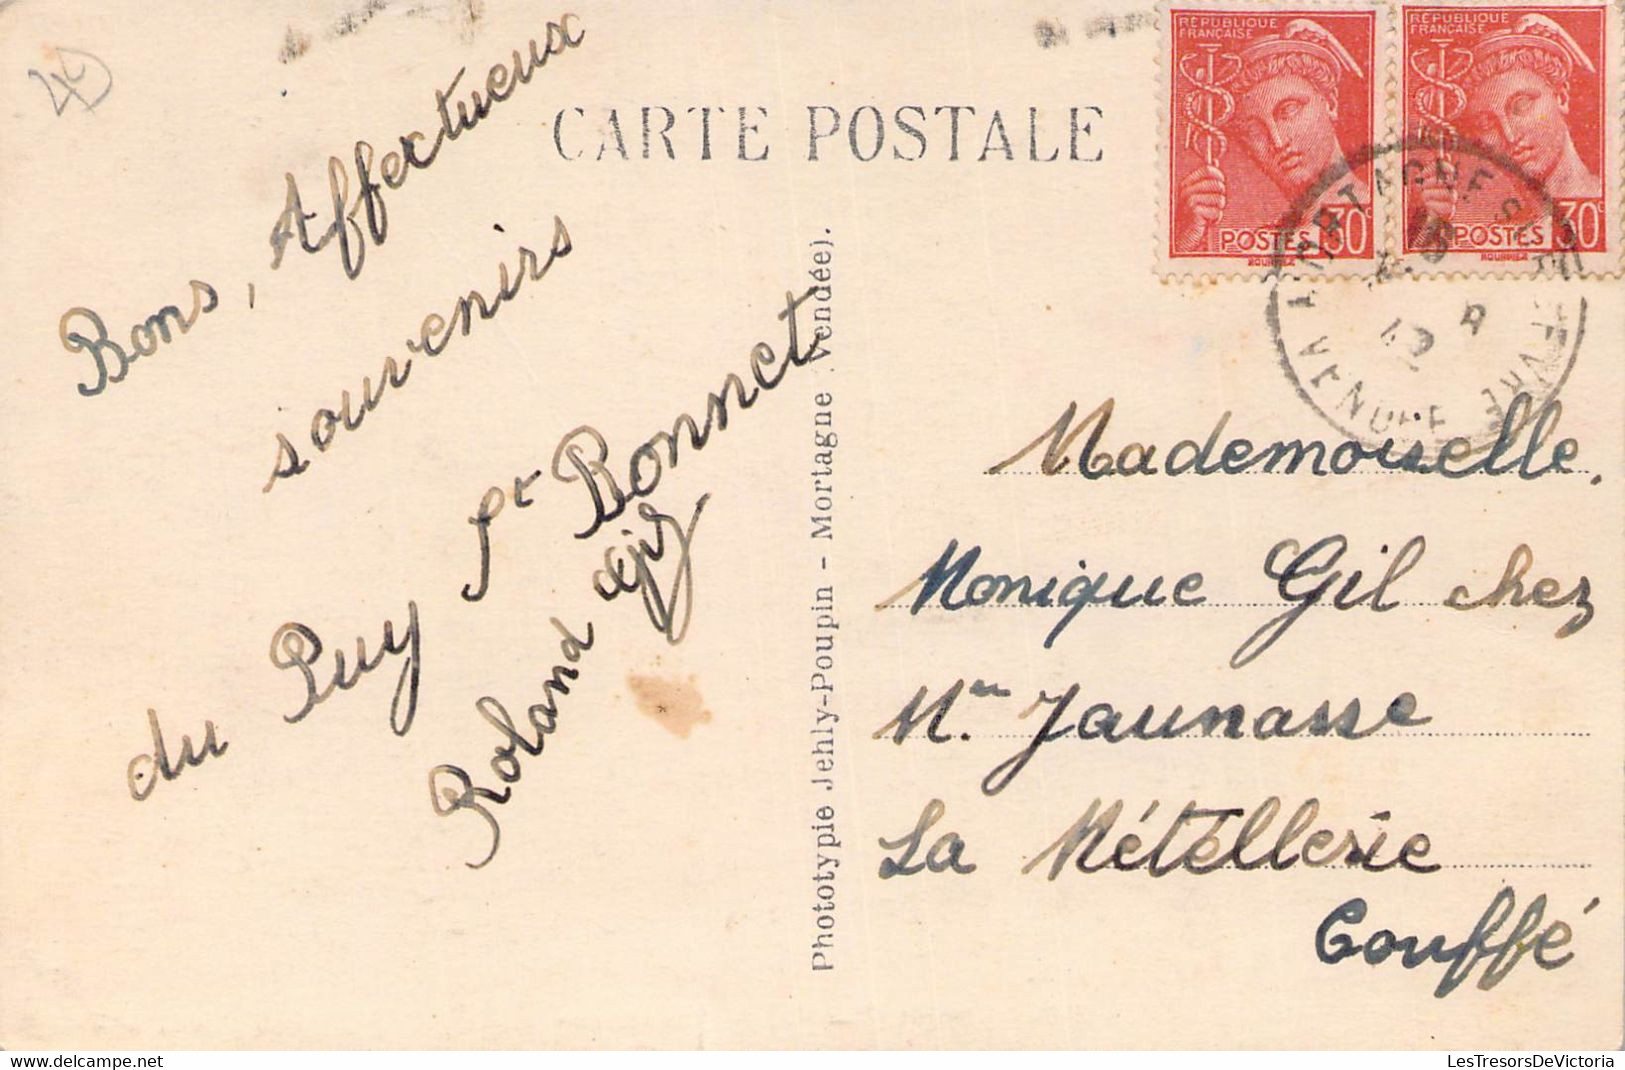 44
CARTE POSTALE
RÉPUBLIQUE
FRANÇAISE
POSTES 30c
RÉPUBLIQUE
FRANÇAISE
POSTES 30c
MORTAGNE SUR SEVRE
VENDEE
42
Bons, Affectueux
souvenirs
du Puy St Bonnet
Roland
Phototypie Jehly-Poupin - Mortagne (Vendée).
Mademoiselle.
Monique Gil chez
Jaunasse
La Métellerie
Couffé
LesTresorsDeVictoria